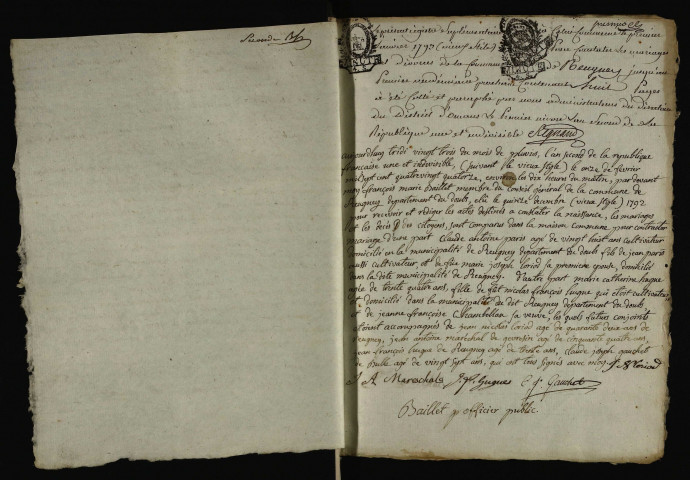 Second
premier
présent registre supplémentaire
janvier 1793 (vieux stile) pour constater les mariages
divorces de la commune de Reugney jusqu'au
Premier vendémiaire prochain Contenant huit pages
a été Cotté et paraphé par nous administrateur du Directoire
du District d'Ornans le Premier nivose L'an Second de La
République une et indivisible Regnaud
aujourdhuy tridi vingt trois du mois de pluviose, l'an second de la republique
francaise une et indivisible, (suivant le vieux style) le onze de fevrier
mil sept cent quatrevingt quatorze, environ les dix heures du matin, par devant
moy françois marie Baillet membre du Conseil général de la commune de
Reugney departement du doubs, elu le quinze decembre (vieux style) 1792
pour recevoir et rediger les actes destinés a constater la naissance, les mariages
et les décès des citoyens, sont comparus dans la maison commune, pour contracter
mariage, d'une part Claude antoine paris agé de vingt huit ans cultivateur
domicilié en la municipalité de Reugney departement du doubs fils de jean paris
aussi cultivateur et de feue marie joseph loriod sa premiere epouse, domicilié
dans la dite municipalité de Reugney. d'autre part marie catherine hugue
agée de trente quatre ans, fille de feu nicolas françois hugue qui etoit cultivateur
et domicilié dans la municipalité du dit Reugney departement du doubs
et de jeanne françoise Chambellan sa veuve, les quels futurs conjoints
etoient accompagnés de jean nicolas loriod agé de quarante deux ans de
Reugney, jean antoine marechal de gevresin agé de cinquante quatre ans,
jean françois hugue de Reugney agé de trente ans, claude joseph gauchet
de Bulle agé de vingt sept ans, qui ont tous signés avec moy J N Loriod
J A Marechal J f Hugues C J Gauchet
Baillet officier public